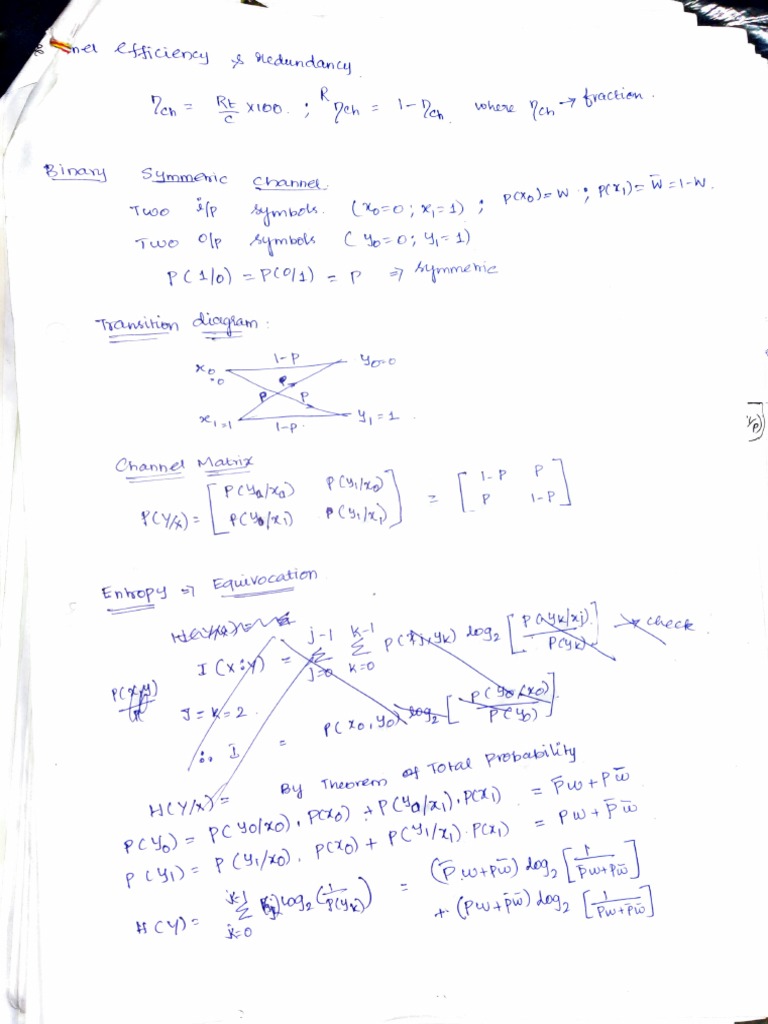 nel efficiency & Redundancy
ηch = Rt/C ×100. ; Rηch = 1-ηch. where ηch → fraction.
Binary Symmetric Channel.
Two i/p symbols. (x0=0 ; x1=1) ; P(x0)=W ; P(x1)= W̄ =1-W.
Two o/p symbols ( y0=0; y1=1)
P(1/0) = P(0/1) = P ⇒ symmetric
Transition diagram:
x0=0 1-P y0=0
P P P
x1=1 1-P. y1=1
Channel Matrix
P(Y/X) = [ P(y0/x0) P(y1/x0) P(y0/x1) P(y1/x1) ] = [ 1-P P P 1-P ]
Entropy ⇒ Equivocation
I(X:Y) = j-1 Σ j=0 k-1 Σ k=0 P(xj,yk) log2 [ P(yk/xj) / P(yk) ] → check
P(x,y)
J=K=2.
∴ I = P(x0,y0) log2 [ P(y0/x0) / P(y0) ].
H(Y/X)= By Theorem of Total Probability
P(y0) = P(y0/x0). P(x0) + P(y0/x1). P(x1) = P̄w + Pw̄
P(y1) = P(y1/x0). P(x0) + P(y1/x1). P(x1) = Pw + P̄w̄
H(Y) = k-1 Σ k=0 log2 (1/P(yk)) = (P̄w+Pw̄) log2 [ 1 / P̄w+Pw̄ ]
+ (Pw+P̄w̄) log2 [ 1 / Pw+P̄w̄ ]